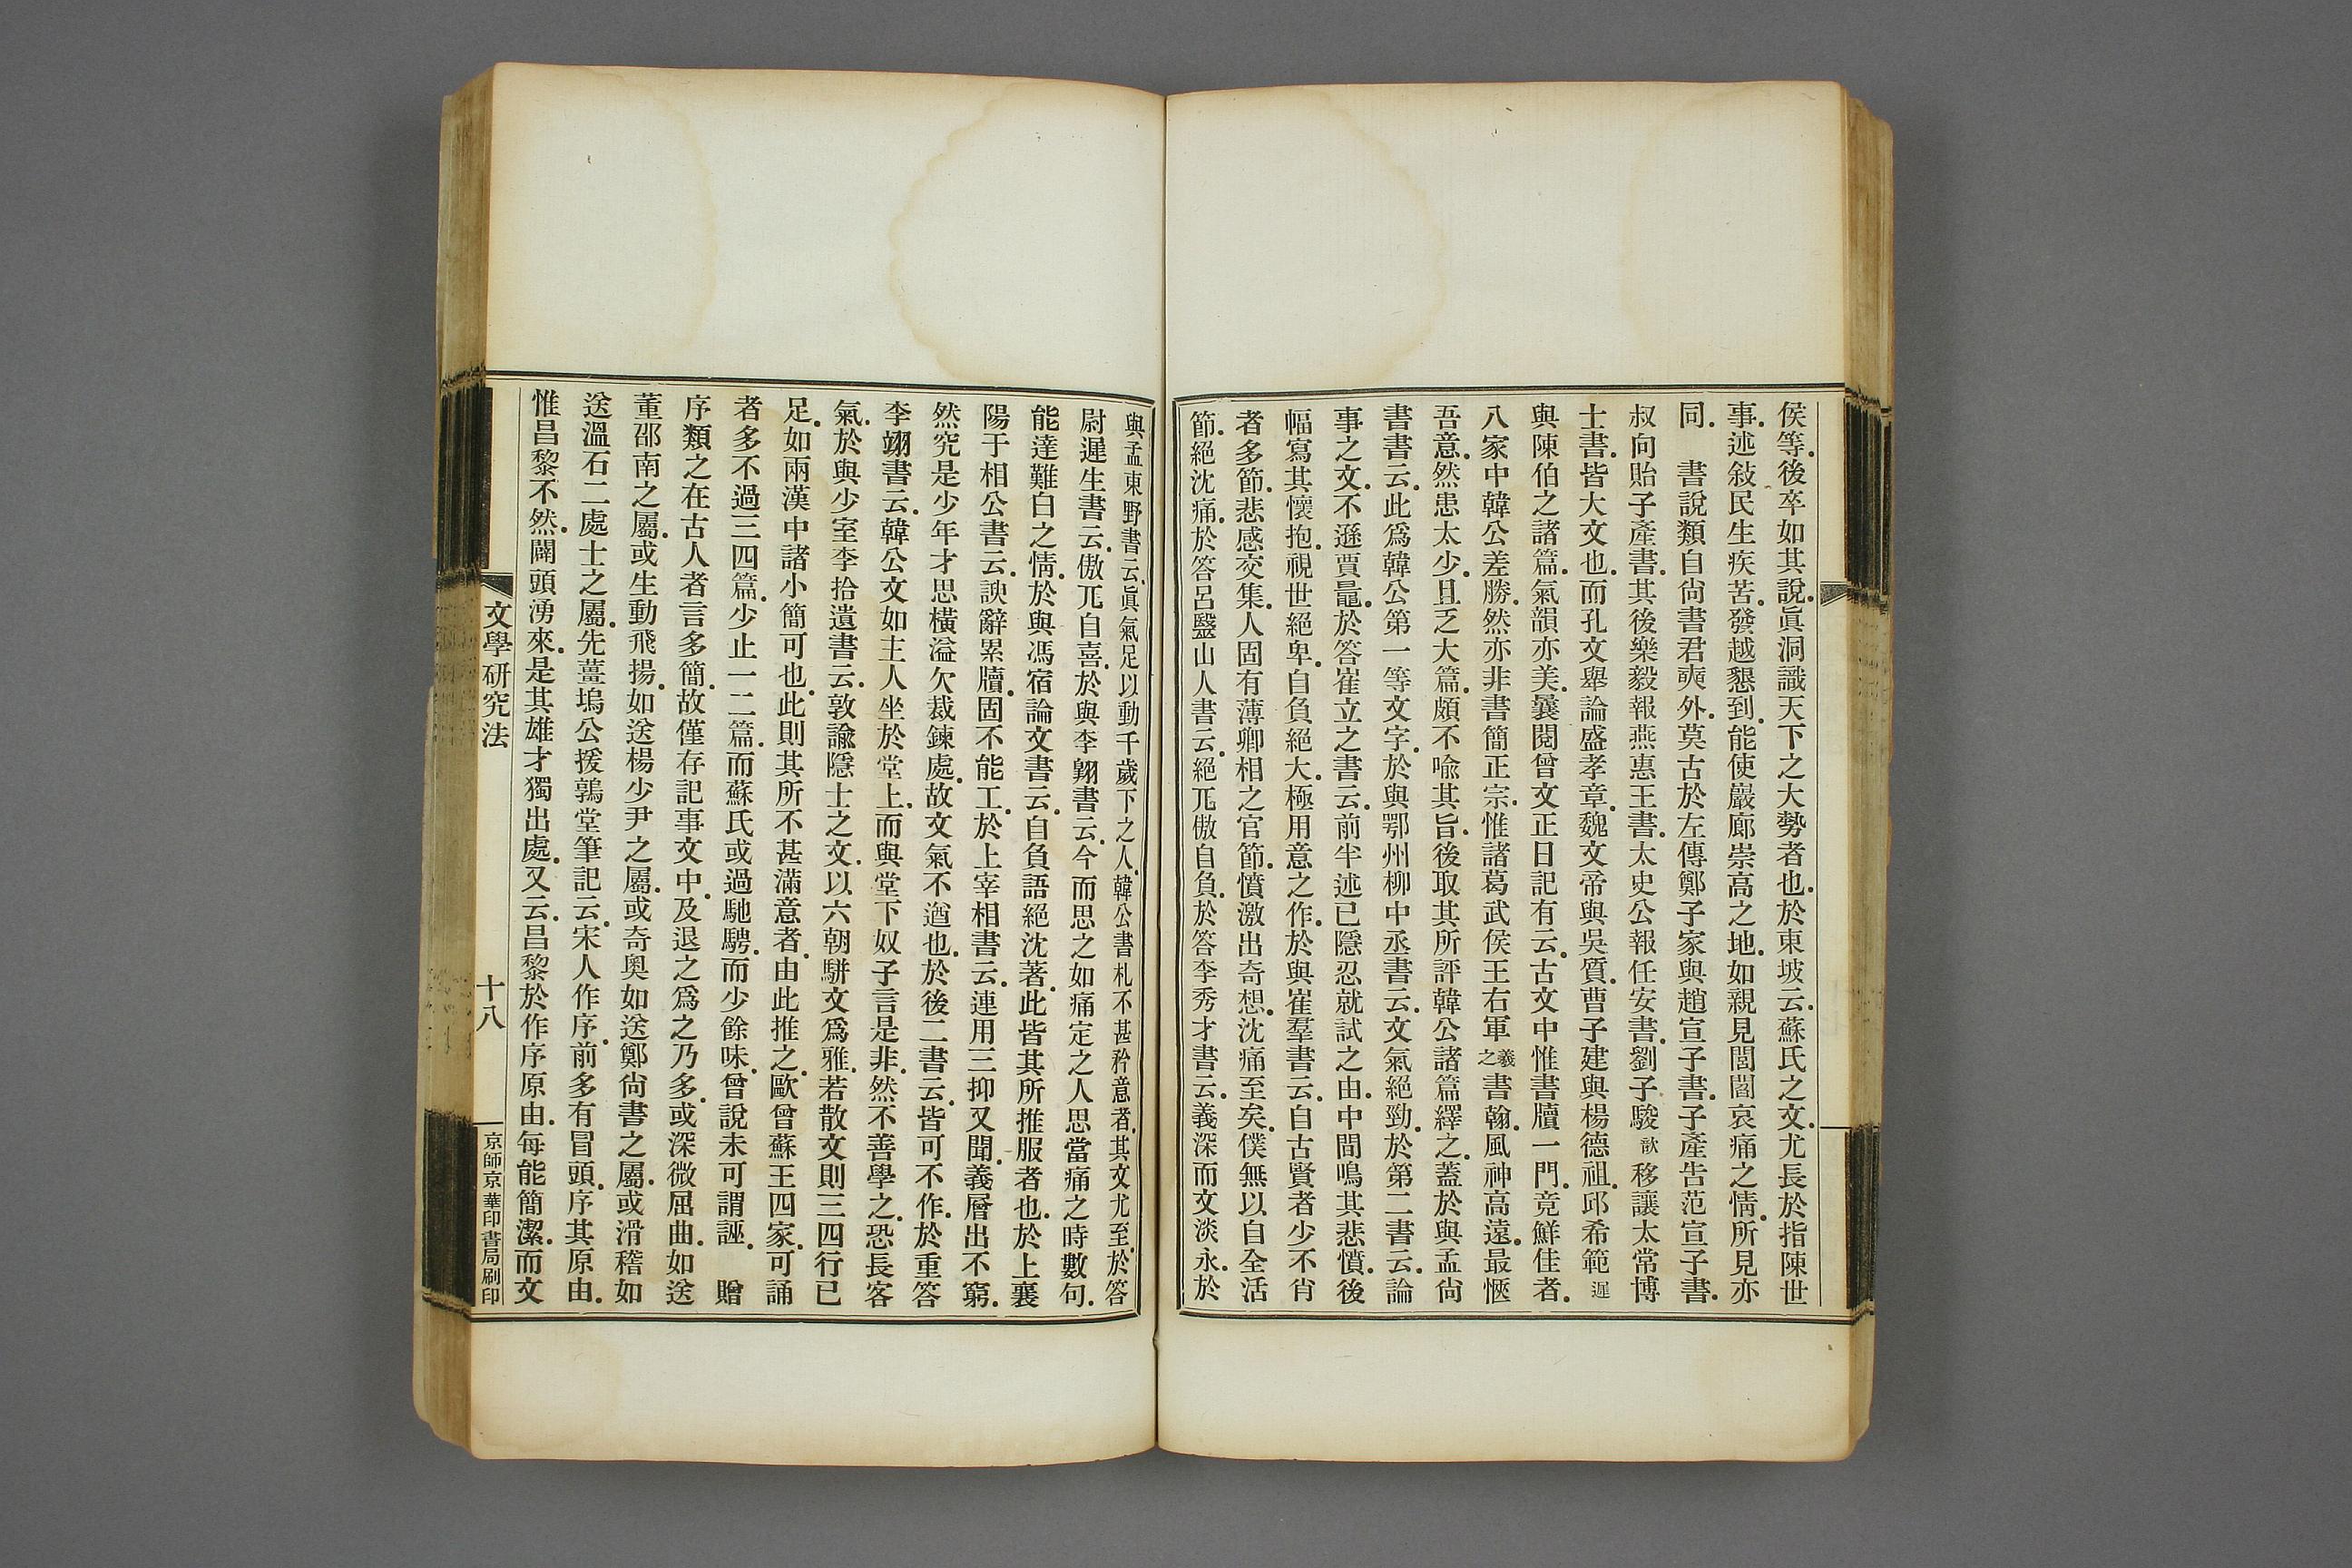 侯等.後卒如其說.眞洞識天下之大勢者也.於東坡云.蘇氏之文.尤長於指陳世
事.述敍民生疾苦.發越懇到.能使巖廊崇高之地.如親見閭閻哀痛之情.所見亦
同.　書說類自尙書君奭外.莫古於左傳鄭子家與趙宣子書.子產吿范宣子書.
叔向貽子產書.其後樂毅報燕惠王書.太史公報任安書.劉子駿歆移讓太常博
士書.皆大文也.而孔文舉論盛孝章.魏文帝與吳質.曹子建與楊德祖.邱希範遲
與陳伯之諸篇.氣韻亦美.曩閱曾文正日記有云.古文中惟書牘一門.竟鮮佳者.
八家中韓公差勝.然亦非書簡正宗.惟諸葛武侯王右軍羲之書翰.風神高遠.最愜
吾意.然患太少.且乏大篇.頗不喩其旨.後取其所評韓公諸篇繹之.蓋於與孟尙
書書云.此爲韓公第一等文字.於與鄂州柳中丞書云.文氣絕勁.於第二書云.論
事之文.不遜賈鼂.於答崔立之書云.前半述已隱忍就試之由.中間鳴其悲憤.後
幅寫其懷抱.視世絕卑.自負絕大.極用意之作.於與崔羣書云.自古賢者少不肖
者多節.悲感交集.人固有薄卿相之官節.憤激出奇想.沈痛至矣.僕無以自全活
節.絕沈痛.於答呂毉山人書云.絕兀傲自負.於答李秀才書云.義深而文淡永.於
與孟東野書云.眞氣足以動千歲下之人.韓公書札不甚矜意者.其文尤至.於答
尉遲生書云.傲兀自喜.於與李翺書云.今而思之如痛定之人思當痛之時數句.
能達難白之情.於與馮宿論文書云.自負語絕沈著.此皆其所推服者也.於上襄
陽于相公書云.諛辭累牘.固不能工.於上宰相書云.連用三抑又聞.義層出不窮.
然究是少年才思橫溢欠裁鍊處.故文氣不遒也.於後二書云.皆可不作.於重答
李翊書云.韓公文如主人坐於堂上.而與堂下奴子言是非.然不善學之.恐長客
氣.於與少室李拾遺書云.敦諭隱士之文.以六朝駢文爲雅.若散文則三四行已
足.如兩漢中諸小簡可也.此則其所不甚滿意者.由此推之.歐曾蘇王四家.可誦
者多不過三四篇.少止一二篇.而蘇氏或過馳騁.而少餘味.曾說未可謂誣.　贈
序類之在古人者言多簡.故僅存記事文中.及退之爲之乃多.或深微屈曲.如送
董邵南之屬.或生動飛揚.如送楊少尹之屬.或奇奧如送鄭尙書之屬.或滑稽如
送溫石二處士之屬.先薑塢公援鶉堂筆記云.宋人作序.前多有冒頭.序其原由.
惟昌黎不然.闢頭湧來.是其雄才獨出處.又云.昌黎於作序原由.每能簡潔.而文
文學研究法
十八
京師京華印書局刷印